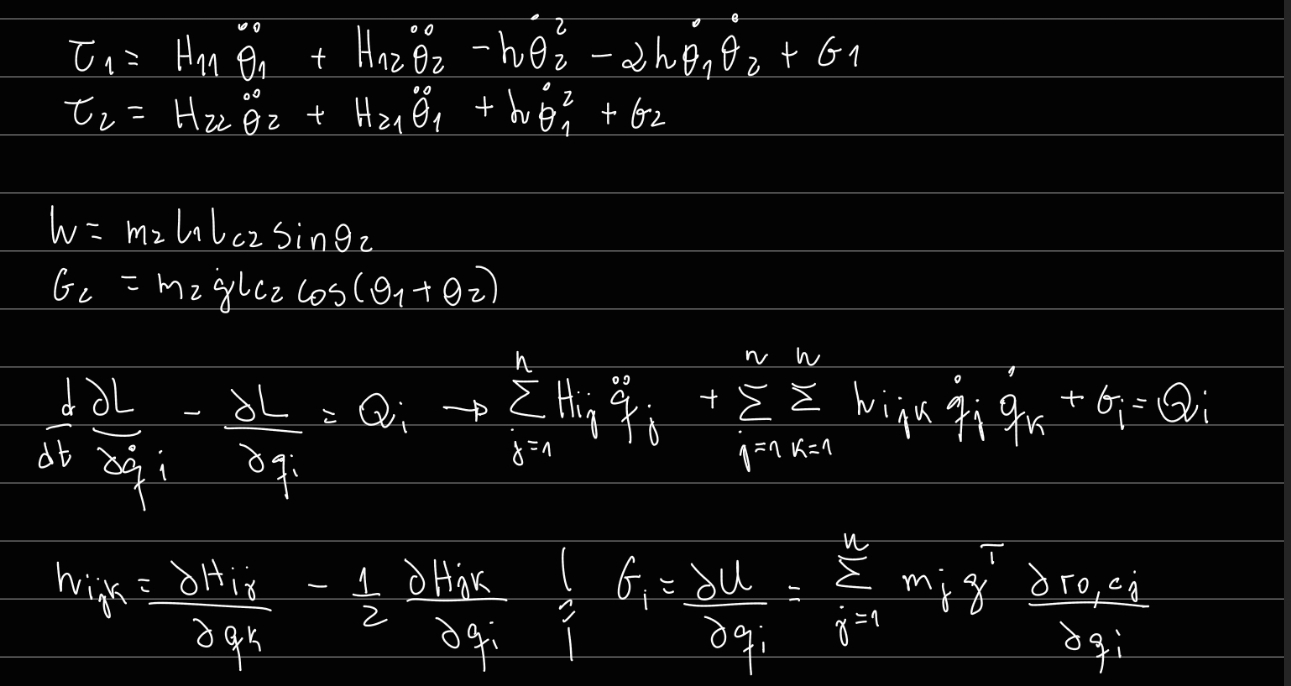 τ₁ = H₁₁ θ̈₁ + H₁₂ θ̈₂ - hθ̇₂² - 2hθ̇₁θ̇₂ + G₁
τ₂ = H₂₂ θ̈₂ + H₂₁ θ̈₁ + hθ̇₁² + G₂
h = m₂ l₁ l_c₂ sinθ₂
G₂ = m₂ g l_c₂ cos(θ₁ + θ₂)
d/dt ∂L/∂q̇ᵢ - ∂L/∂qᵢ = Qᵢ → Σ_{j=1}^{n} Hᵢⱼ q̈ⱼ + Σ_{j=1}^{n} Σ_{k=1}^{n} hᵢⱼₖ q̇ⱼ q̇ₖ + Gᵢ = Qᵢ
hᵢⱼₖ = ∂Hᵢⱼ/∂qₖ - 1/2 ∂Hⱼₖ/∂qᵢ ; Gᵢ = ∂U/∂qᵢ = Σ_{j=1}^{n} mⱼ gᵀ ∂r₀,cⱼ/∂qᵢ